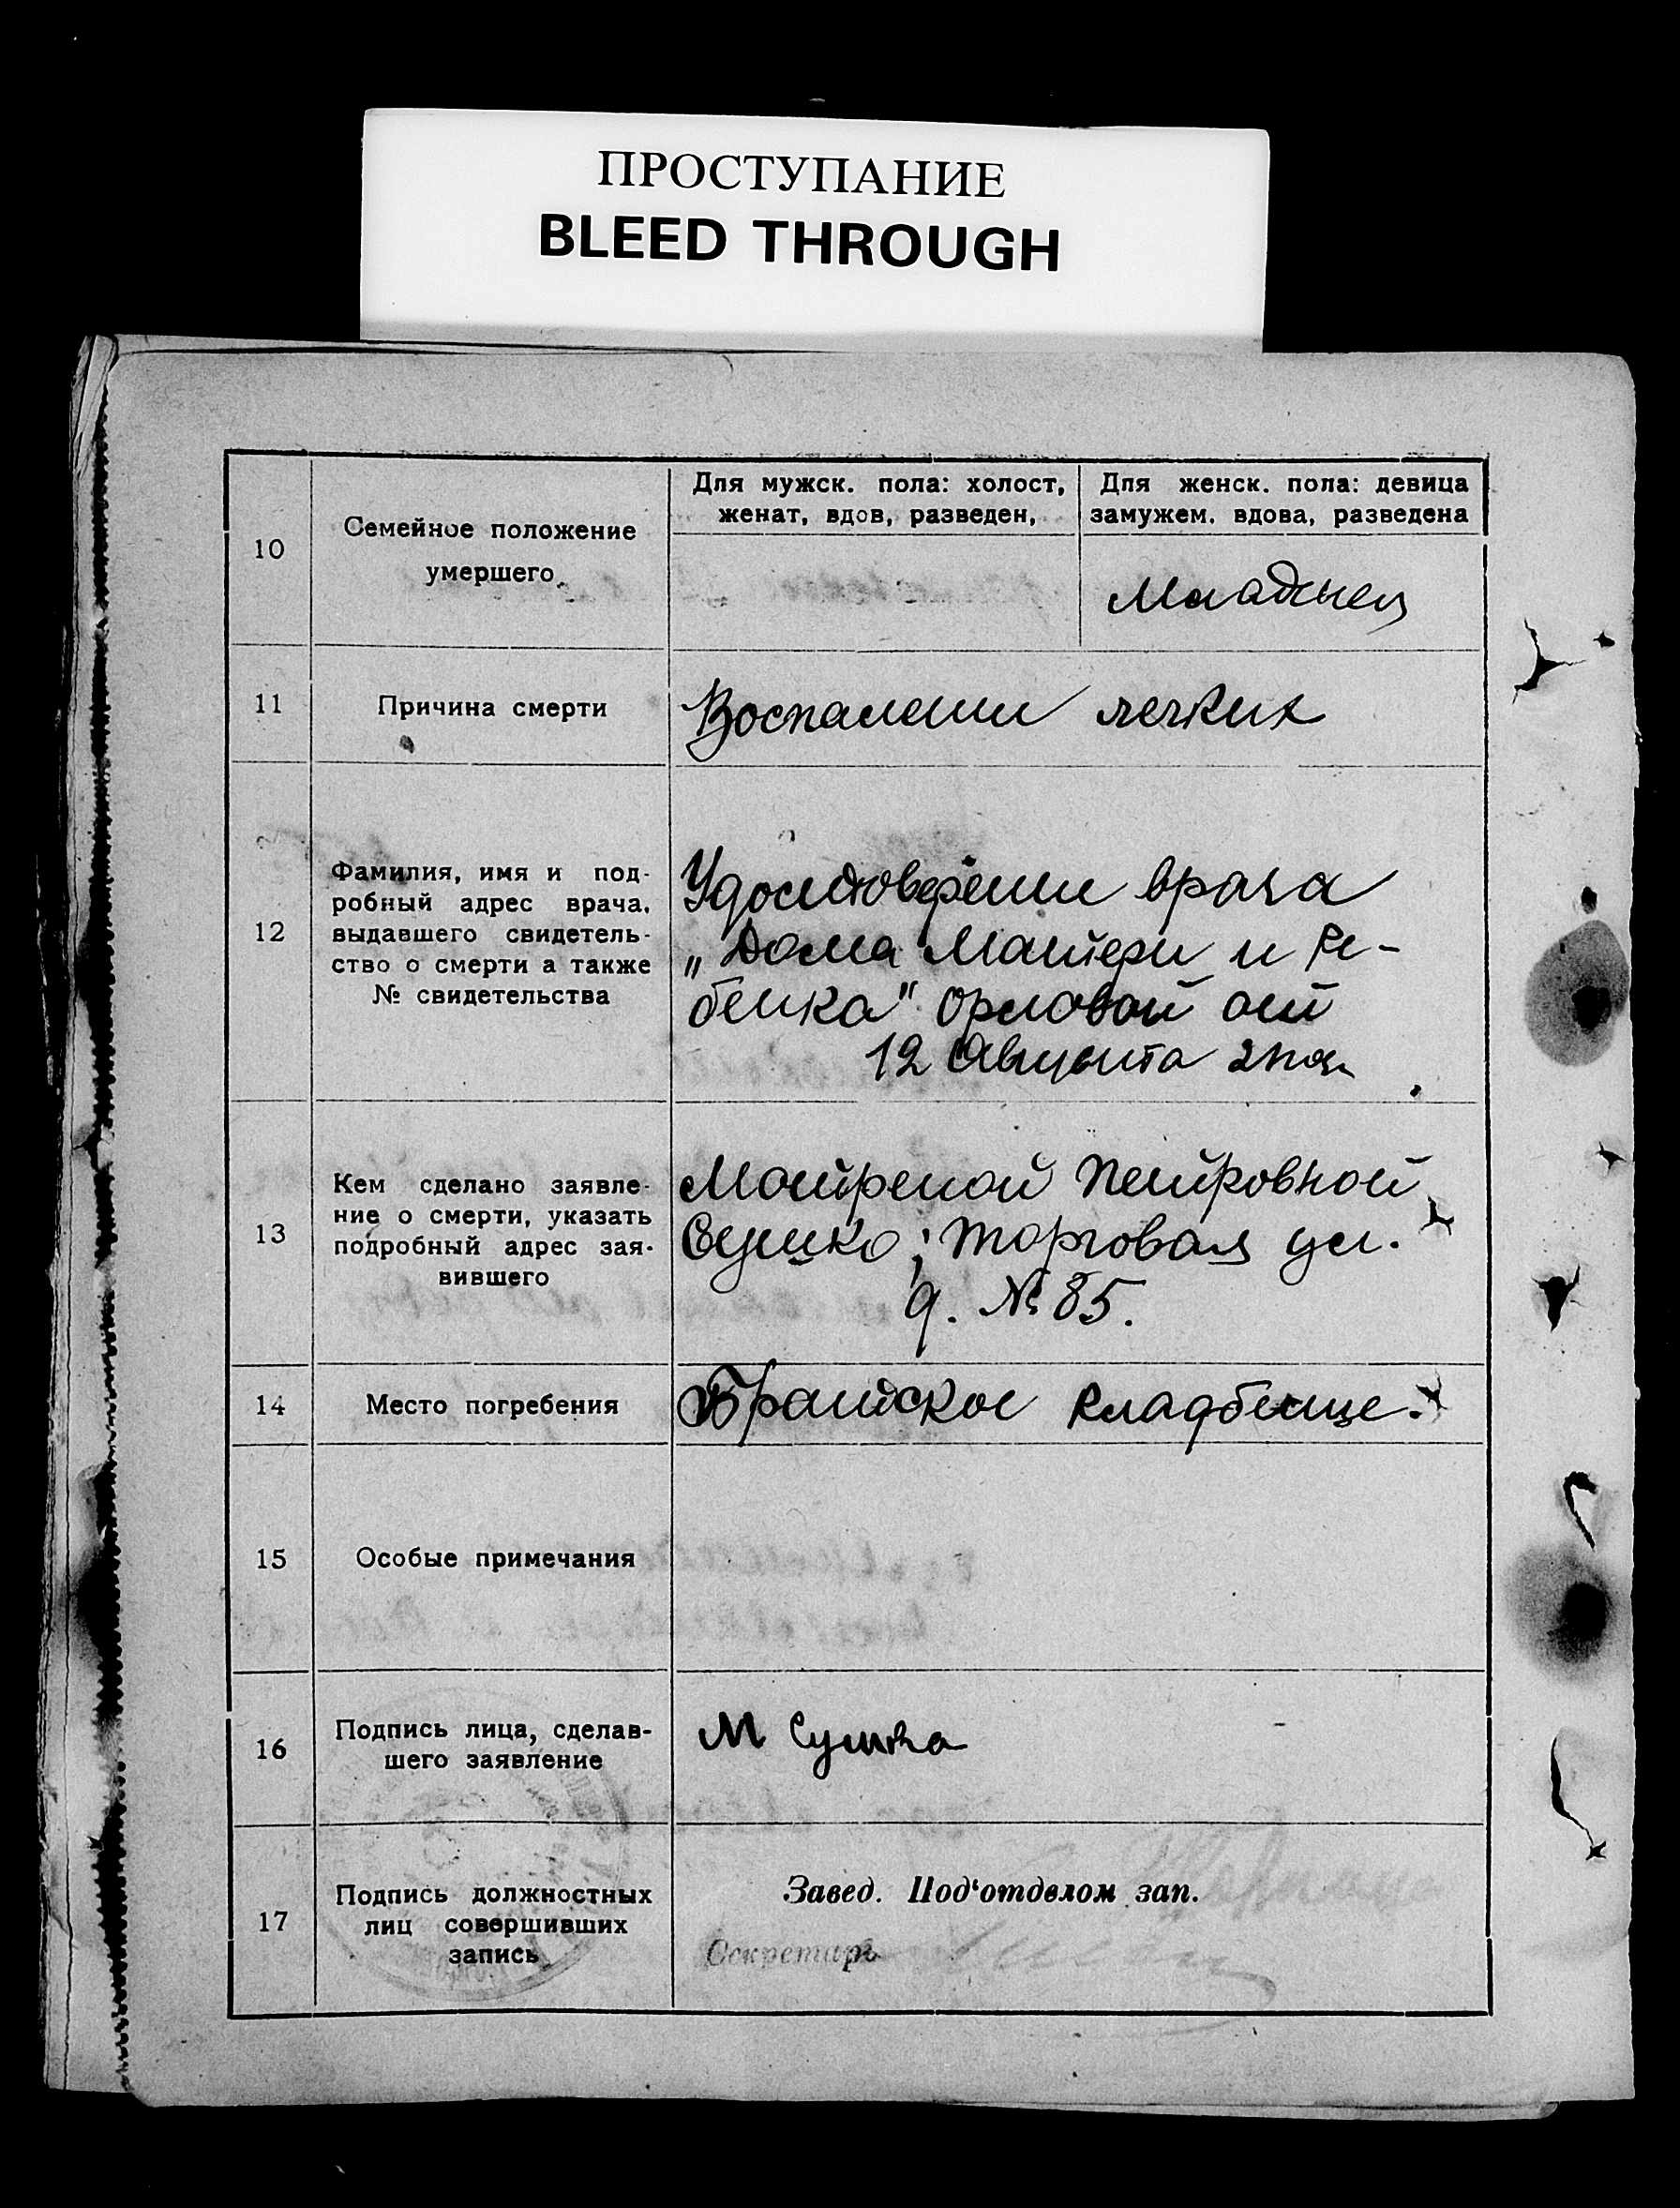 ПРОСТУПАНИЕ
BLEED THROUGH
10
Семейное положение
умершего
Для мужск. пола: холост,
женат, вдов, разведен,
Для женск. пола: девица
замужем. вдова, разведена
Младенец
11
Причина смерти
Воспаление легких
12
Фамилия, имя и под-
робный адрес врача,
выдавшего свидетель-
ство о смерти а также
№ свидетельства
Удостоверение врача
„Дома Матери и Ре-
бенка" Орловой от
12 Августа
13
Кем сделано заявле-
ние о смерти, указать
подробный адрес зая-
вившего
Матреной Петровной
Сушко; Торговая ул.
д. № 85.
14
Место погребения
Братское кладбище.
15
Особые примечания
16
Подпись лица, сделав-
шего заявление
М Сушка
17
Подпись должностных
лиц совершивших
запись
Завед. Под'отделом зап.
Секретарь